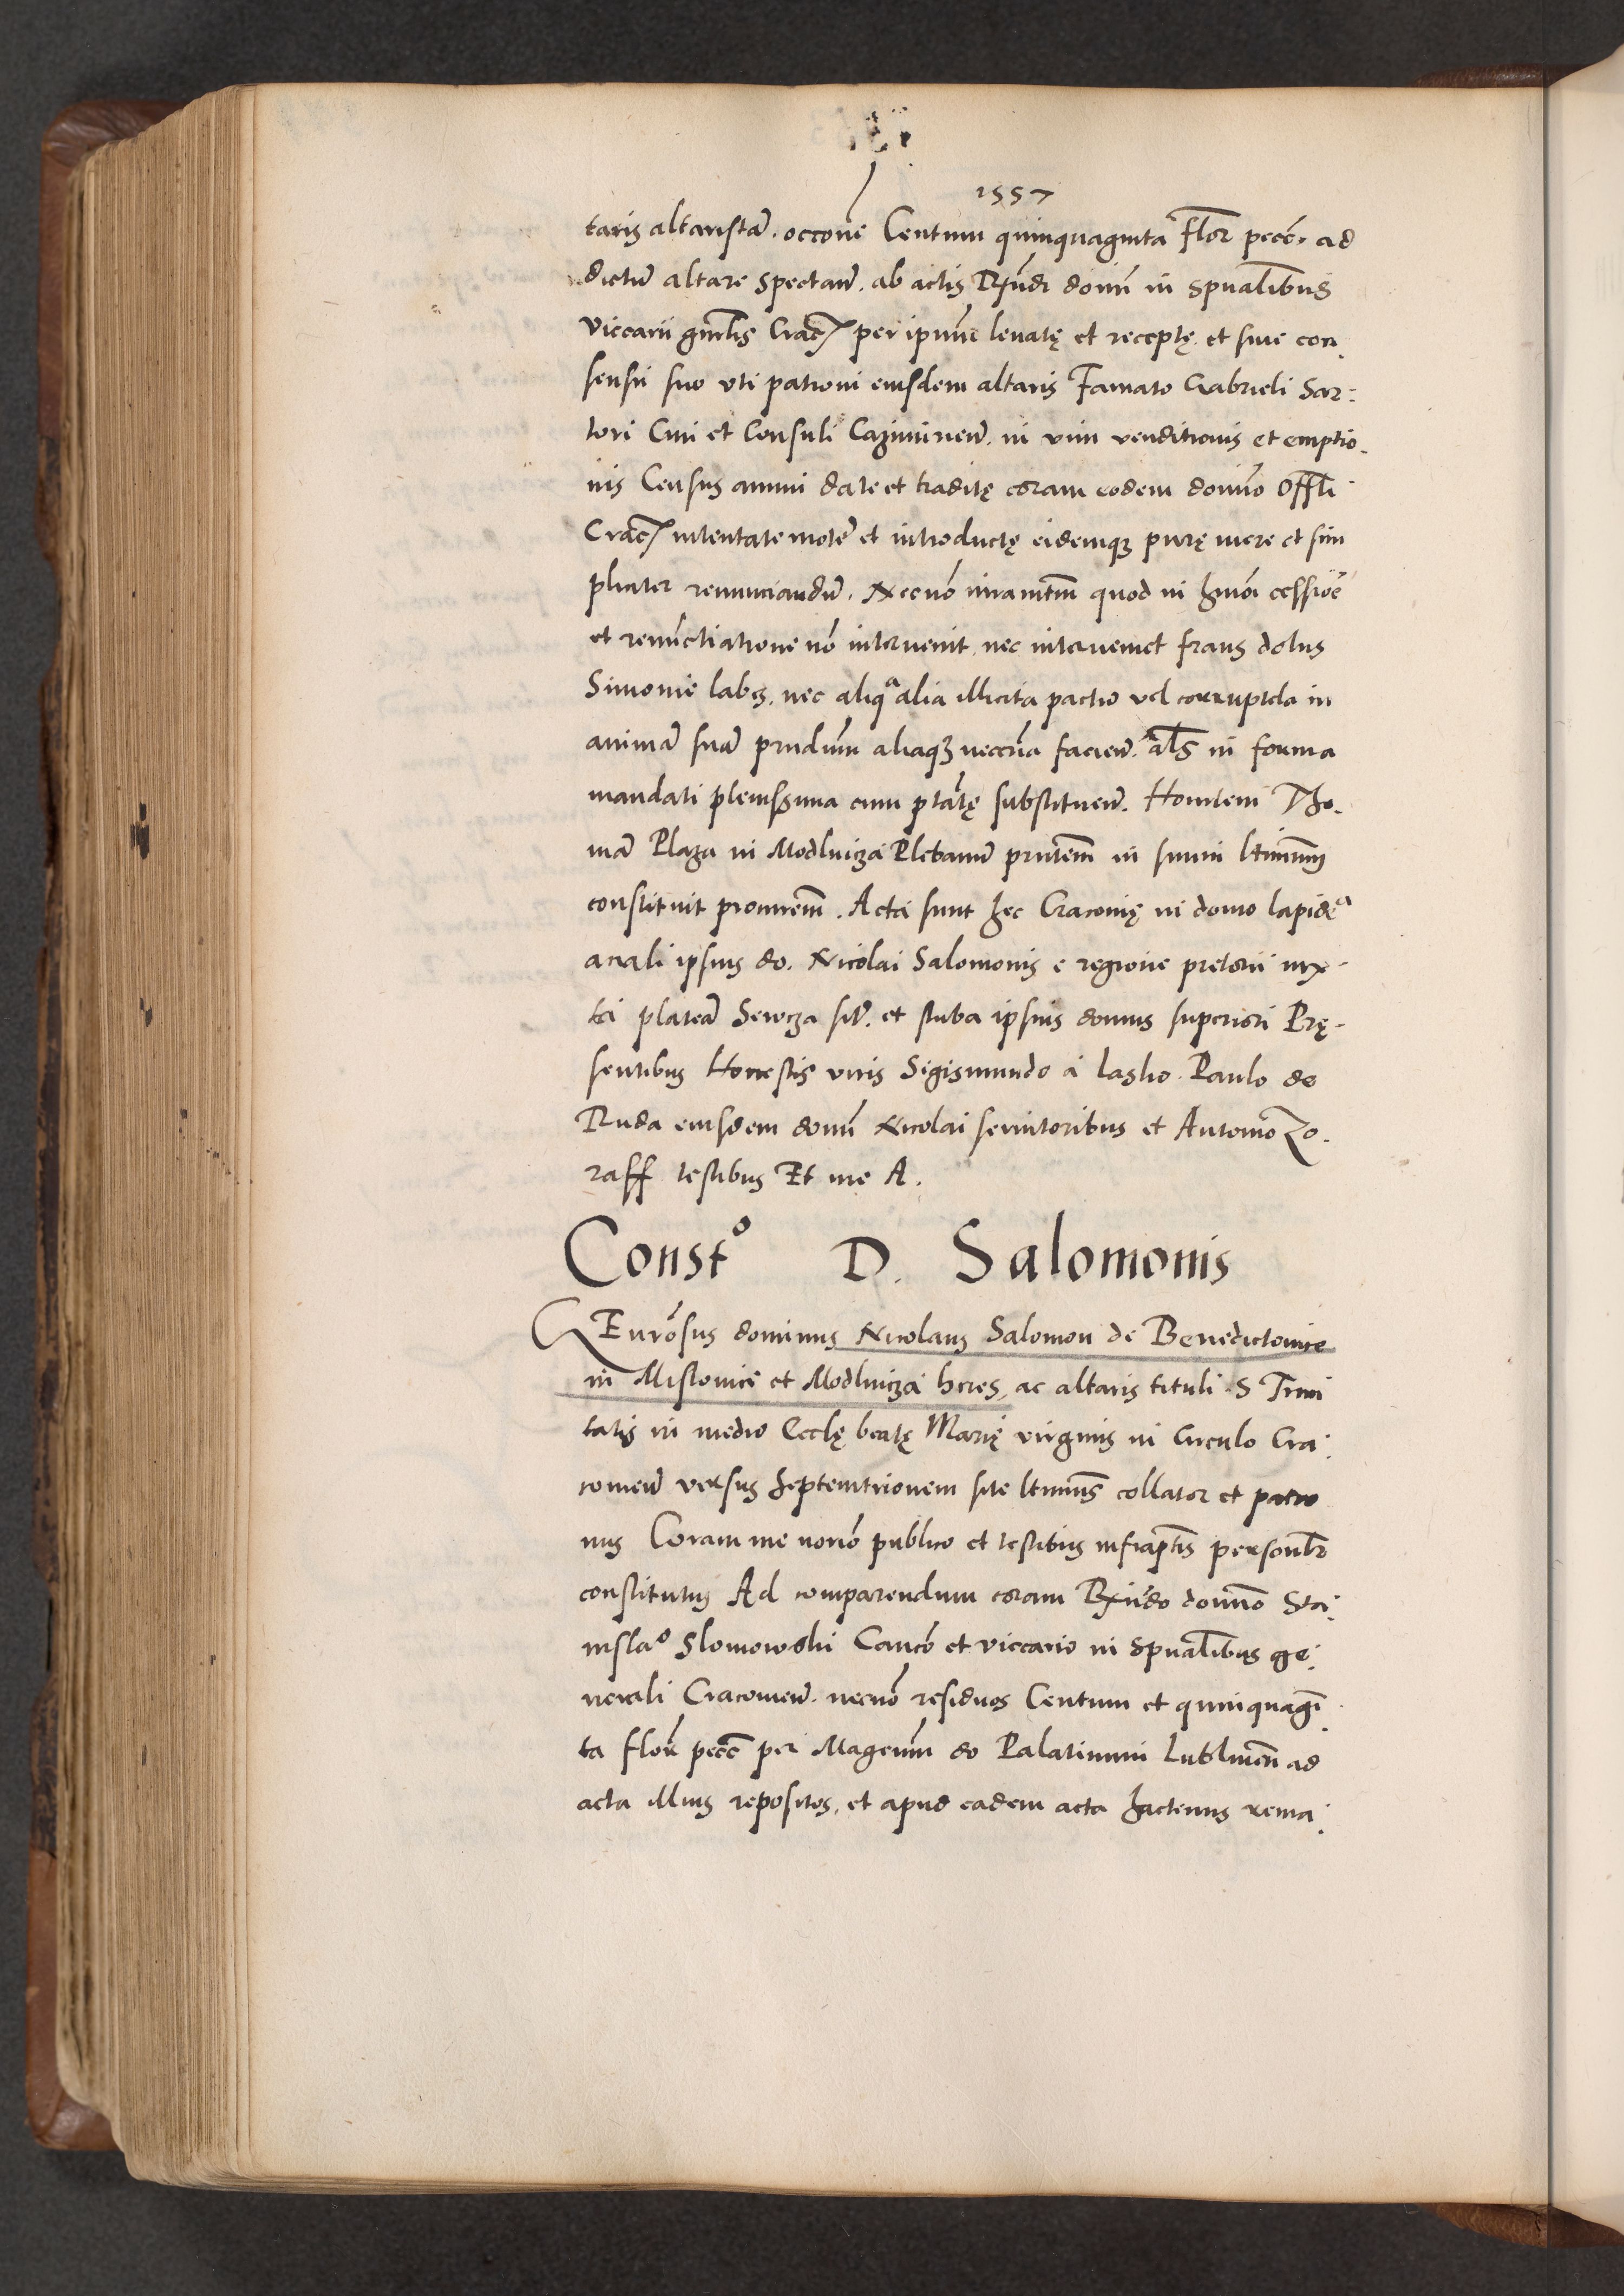 1557
taris altaristā. occone Centum quinquaginta flor pecc. ad
dictū altare spectań. ab actis Rṅdi domī in spūalibus
Viccarii gńrlis Crac. per ipsum levatę et receptę et sine con
sensu suo uti patroni eiusdem altaris Famato Gabrieli Sar:
tori Civi et Consuli Cazimirień. in vim venditionis et emptio.
nis Census annui date et traditę coram eodem domino Offli
Crac. intentate mote et introductę eidemq; purę mere et sim
pliciter renunciandū. Necnō iuramtm quod in hmōi cessiōe
et renūctiatione nō intervenit, nec interveniet fraus dolus
Simonie labes, nec aliqᵃ alia illicita pactio vel corruptela in
animā suā prēdium aliaq; neccria facień. als in forma
mandati plenissima cum ptātę substituen. Honlem Tho.
mā Plaza in Modlnicza Plebanū prntem in suum ltimum
constituit procurem. Acta sunt hec Cracovię in domo lapideᵃ
acali ipsius do. Nicolai Salomonis e regione pretorii iux
ta plateā Sewcza sit. et stuba ipsius domus superiori Prę.
sentibus Honestis viris Sigismundo a Lasko Paulo de
Ruda eiusdem domī Nicolai servitoribus et Antonio Zo.
raff testibus Et me A.
Constº D. Salomonis
GEnrōsus dominus Nicolaus Salomon de Benedictowice
in Mislovice et Modlnicza heres, ac altaris tituli S Trini
tatis in medio Ecclę beatę Marię virginis in Circulo Cra
covień versus Septemtrionem site ltimus collator et patro
nus Coram me norio publico et testibus infrapts personlr
constitutus Ad comparendum coram Rṅdo domino Sta
nislaº Slomowski Canco et viccario in Spualibus ge
nerali Cracovień. necnō residuos Centum et quinquagī
ta flor pecc per Magcum do Palatinum Lublineń ad
acta illius repositos, et apud eadem acta hactenus rema